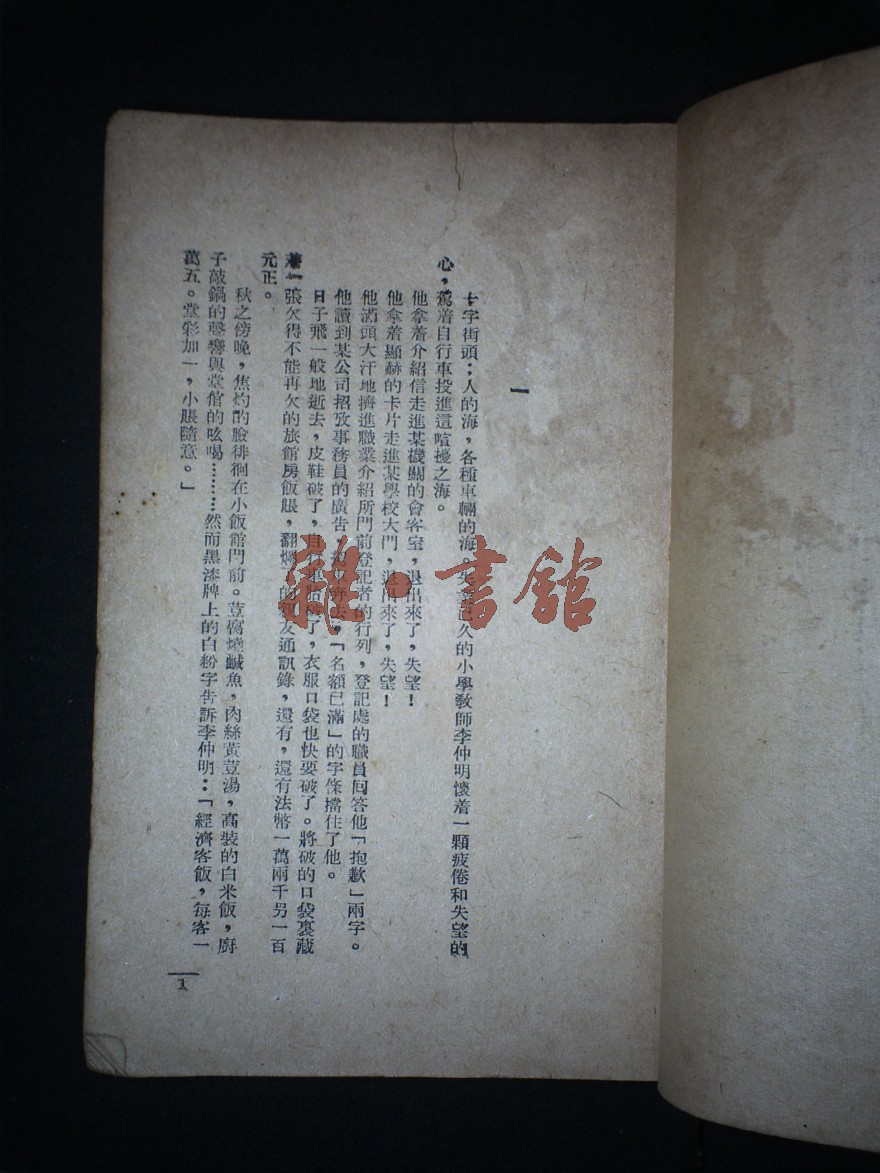 一
十字街頭：人的海，各種車輛的海。失業已久的小學教師李仲明懷着一顆疲倦和失望的
心，駕着自行車投進這喧擾之海。
他拿着介紹信走進某機關的會客室，退出來了，失望！
他拿着顯赫的卡片走進某學校大門，退出來了，失望！
他滿頭大汗地擠進職業介紹所門前登記者的行列，登記處的職員回答他「抱歉」兩字。
他讀到某公司招攷事務員的廣告，「名額已滿」的字條擋住了他。
日子飛一般地逝去，皮鞋破了，自行車胎破了，衣服口袋也快要破了。將破的口袋裏藏
着一張欠得不能再欠的旅館房飯賬，翻爛了的親友通訊錄，還有，還有法幣一萬兩千另一百
元正。
秋之傍晚，焦灼的臉徘徊在小飯館門前。荳腐燒鹹魚，肉絲黃荳湯，高裝的白米飯，廚
子敲鍋的聲響與堂倌的吆喝………然而黑漆牌上的白粉字告訴李仲明：「經濟客飯，每客一
萬五。堂彩加一，小賬隨意。」
1
龍·書館